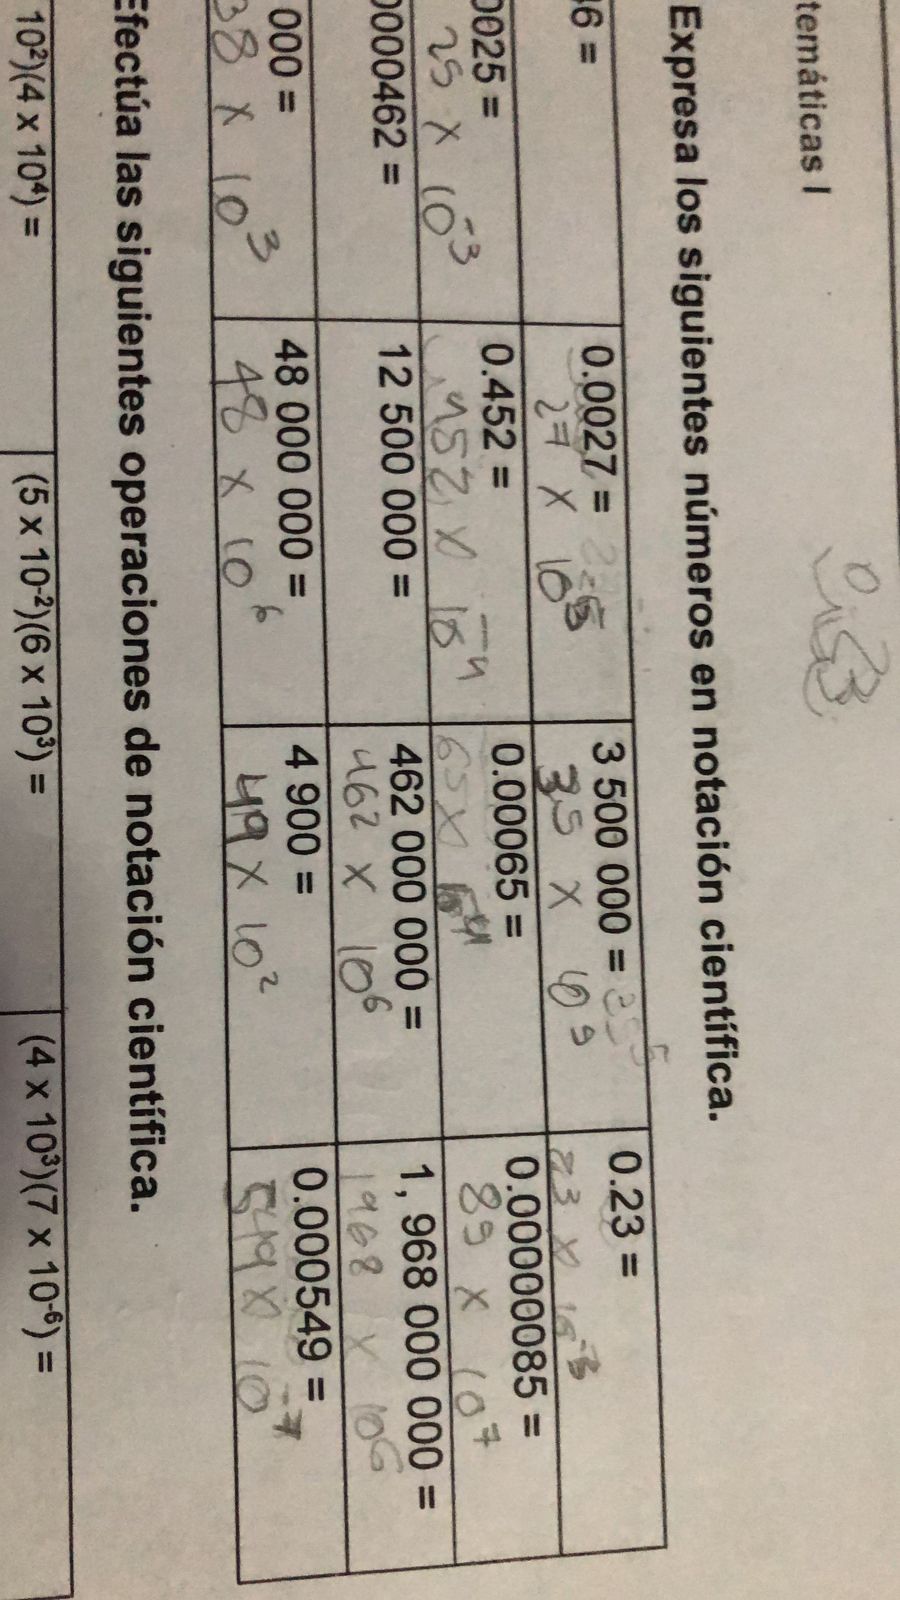 temáticas I
Expresa los siguientes números en notación científica.
0.0027 =
27 x 10
3 500 000 =
3,5 x 10
0.23 =
23 x 10⁻³
0025 =
25 x 10⁻³
0.452 =
452 x 10⁻⁴
0.00065 =
65 x
0.00000085 =
85 x 10⁷
0000462 =
12 500 000 =
462 000 000 =
462 x 10⁶
1, 968 000 000 =
1968 x 10⁶
000 =
38 x 10³
48 000 000 =
48 x 10⁶
4 900 =
49 x 10²
0.000549 =
549 x 10⁻⁷
Efectúa las siguientes operaciones de notación científica.
10²)(4 x 10⁴) =
(5 x 10⁻²)(6 x 10³) =
(4 x 10³)(7 x 10⁻⁶) =